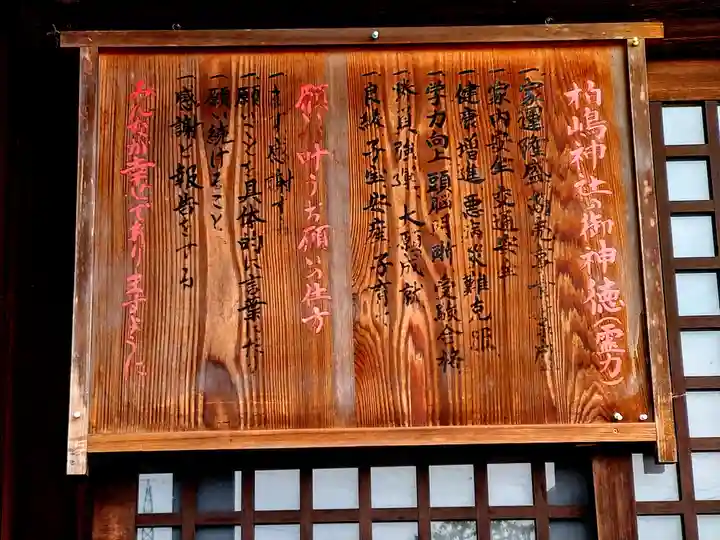 柏嶋神社の御神徳(霊力)
一家運隆盛 商売
一家内安全 交通安全
一健康増進 悪病災難克服
一学力向上 頭脳明晰 受験合格
一勝負強運 大願成就
一良縁 子宝 安産 子育
願いが叶うお願いの仕方
一まず感謝す
一願いごとを具体的に言葉に
一願い続けること
一感謝と報告をする
みんなが幸せでありますように